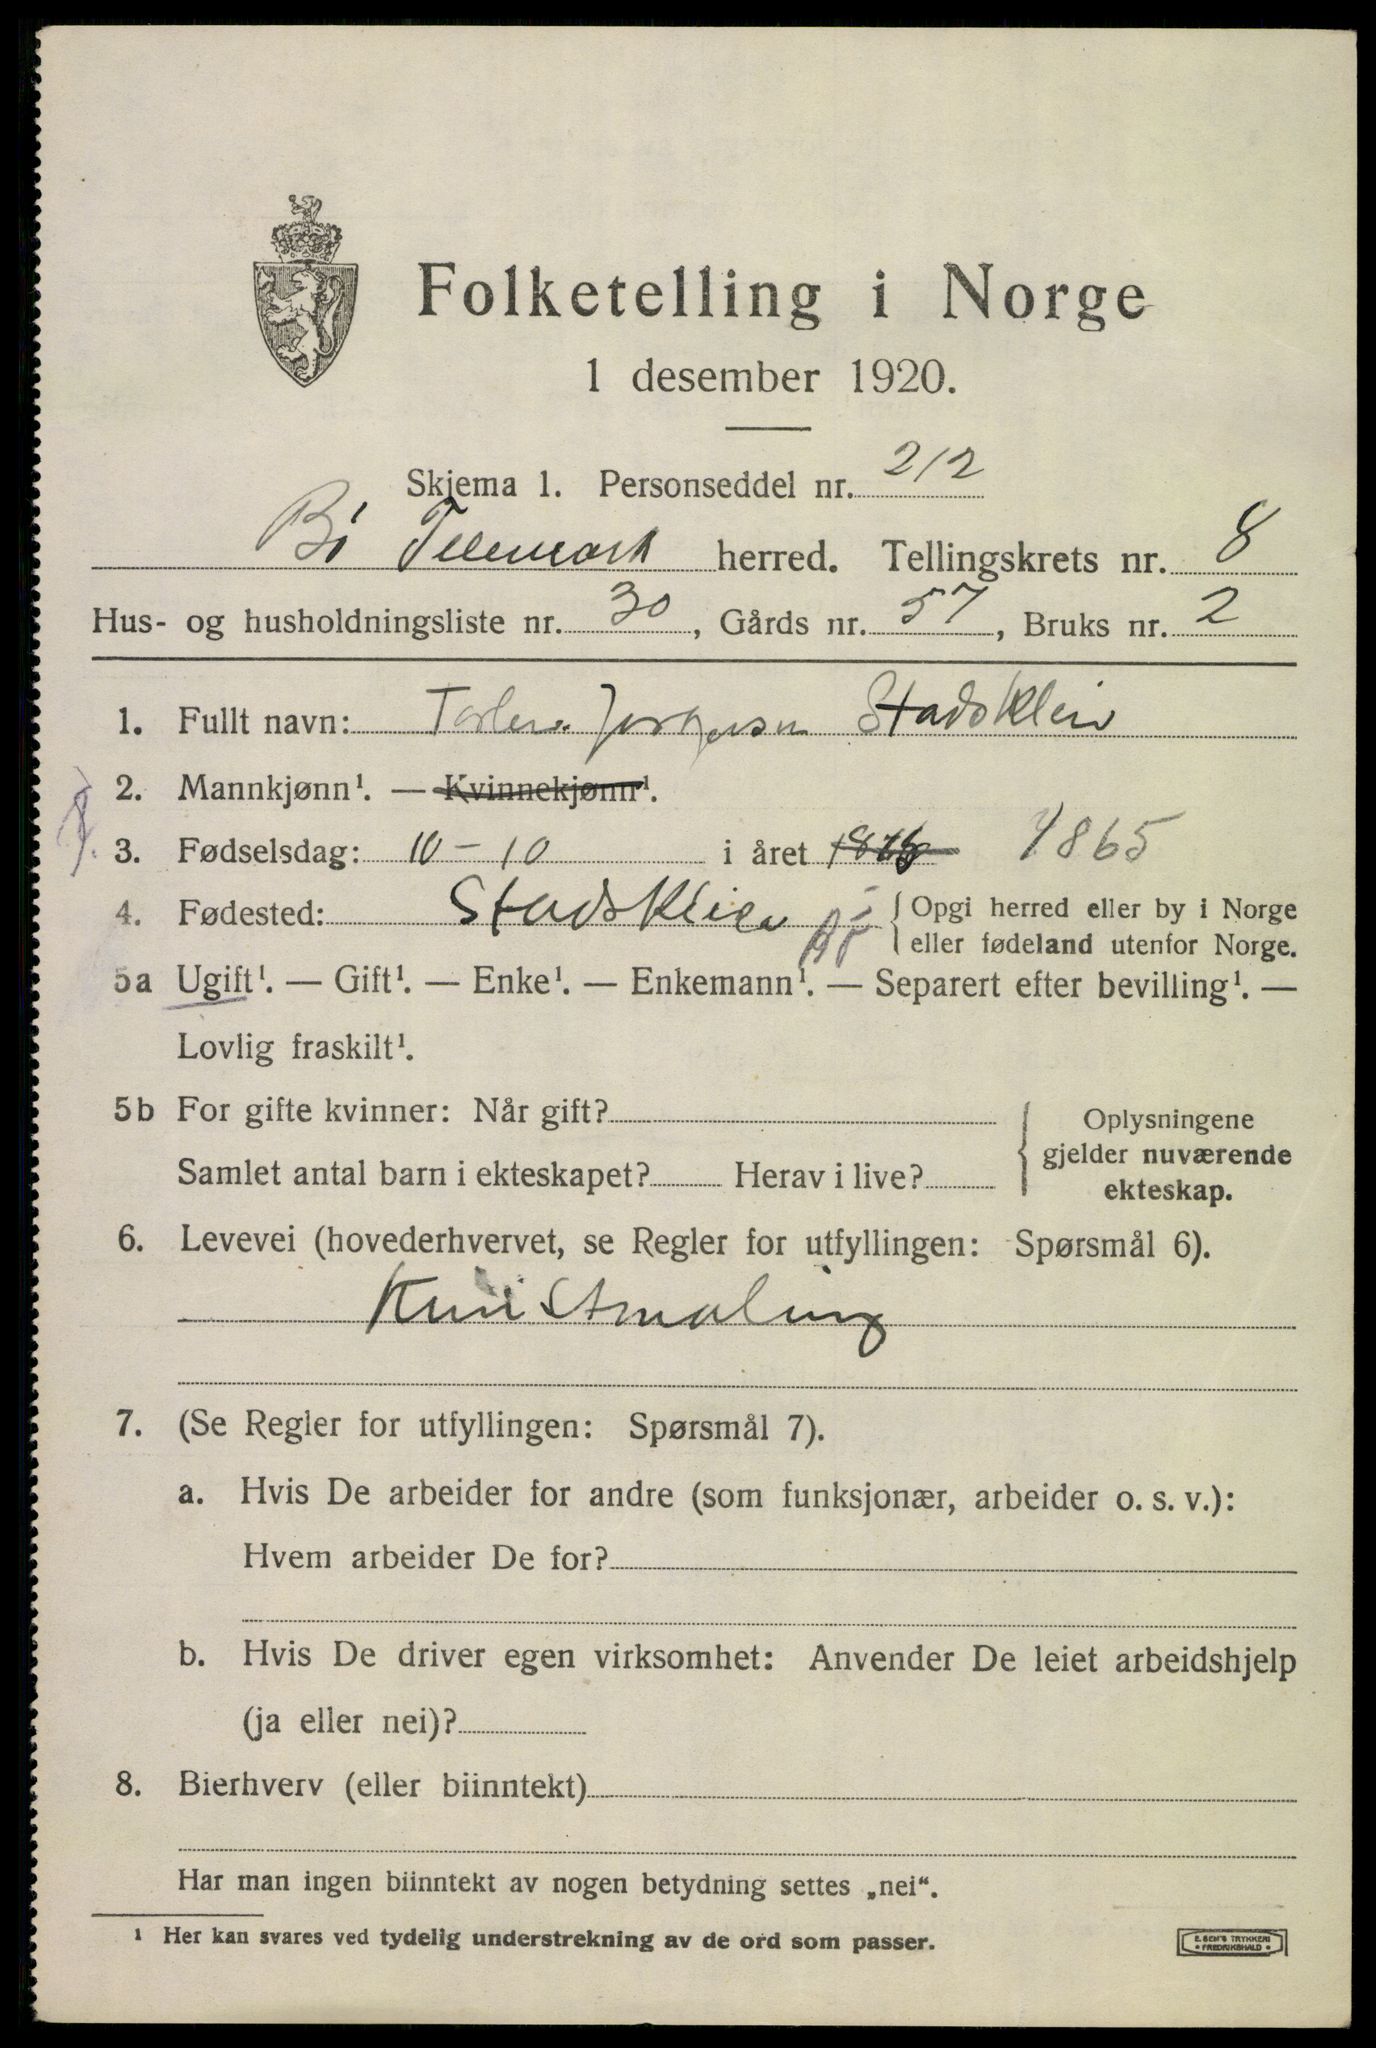 Folketelling i Norge
1 desember 1920.
Skjema 1. Personseddel nr. 212
Bö Telemark herred. Tellingskrets nr. 8
Hus- og husholdningsliste nr. 30, Gårds nr. 57, Bruks nr. 2
1. Fullt navn: Jørgensen Stadskleiv
2. Mannkjønn¹. — Kvinnekjønn¹.
3. Fødselsdag: 10 - 10 i året 1865
4. Fødested: Stadskleiv Bö { Opgi herred eller by i Norge
eller fødeland utenfor Norge.
5a Ugift¹. — Gift¹. — Enke¹. — Enkemann¹. — Separert efter bevilling¹. —
Lovlig fraskilt¹.
5b For gifte kvinner: Når gift? { Oplysningene
gjelder nuværende
Samlet antal barn i ekteskapet? Herav i live?
ekteskap.
6. Levevei (hovederhvervet, se Regler for utfyllingen: Spørsmål 6).
Kunstmaling
7. (Se Regler for utfyllingen: Spørsmål 7).
a. Hvis De arbeider for andre (som funksjonær, arbeider o. s. v.):
Hvem arbeider De for?
b. Hvis De driver egen virksomhet: Anvender De leiet arbeidshjelp
(ja eller nei)?
8. Bierhverv (eller biinntekt)
Har man ingen biinntekt av nogen betydning settes „nei“.
¹ Her kan svares ved tydelig understrekning av de ord som passer.
E. SEM'S TRYKKERI
* FREDRIKSHALD *